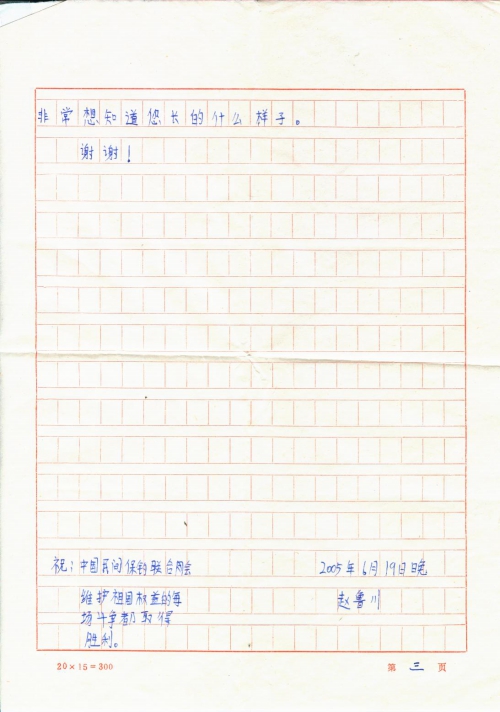 非常想知道您长的什么样子。
谢谢!
祝:中国民间保钓联合网会 2005年6月19日晚
维护祖国权益的每 赵鲁川
场斗争都取得
胜利。
20×15=300 第三页